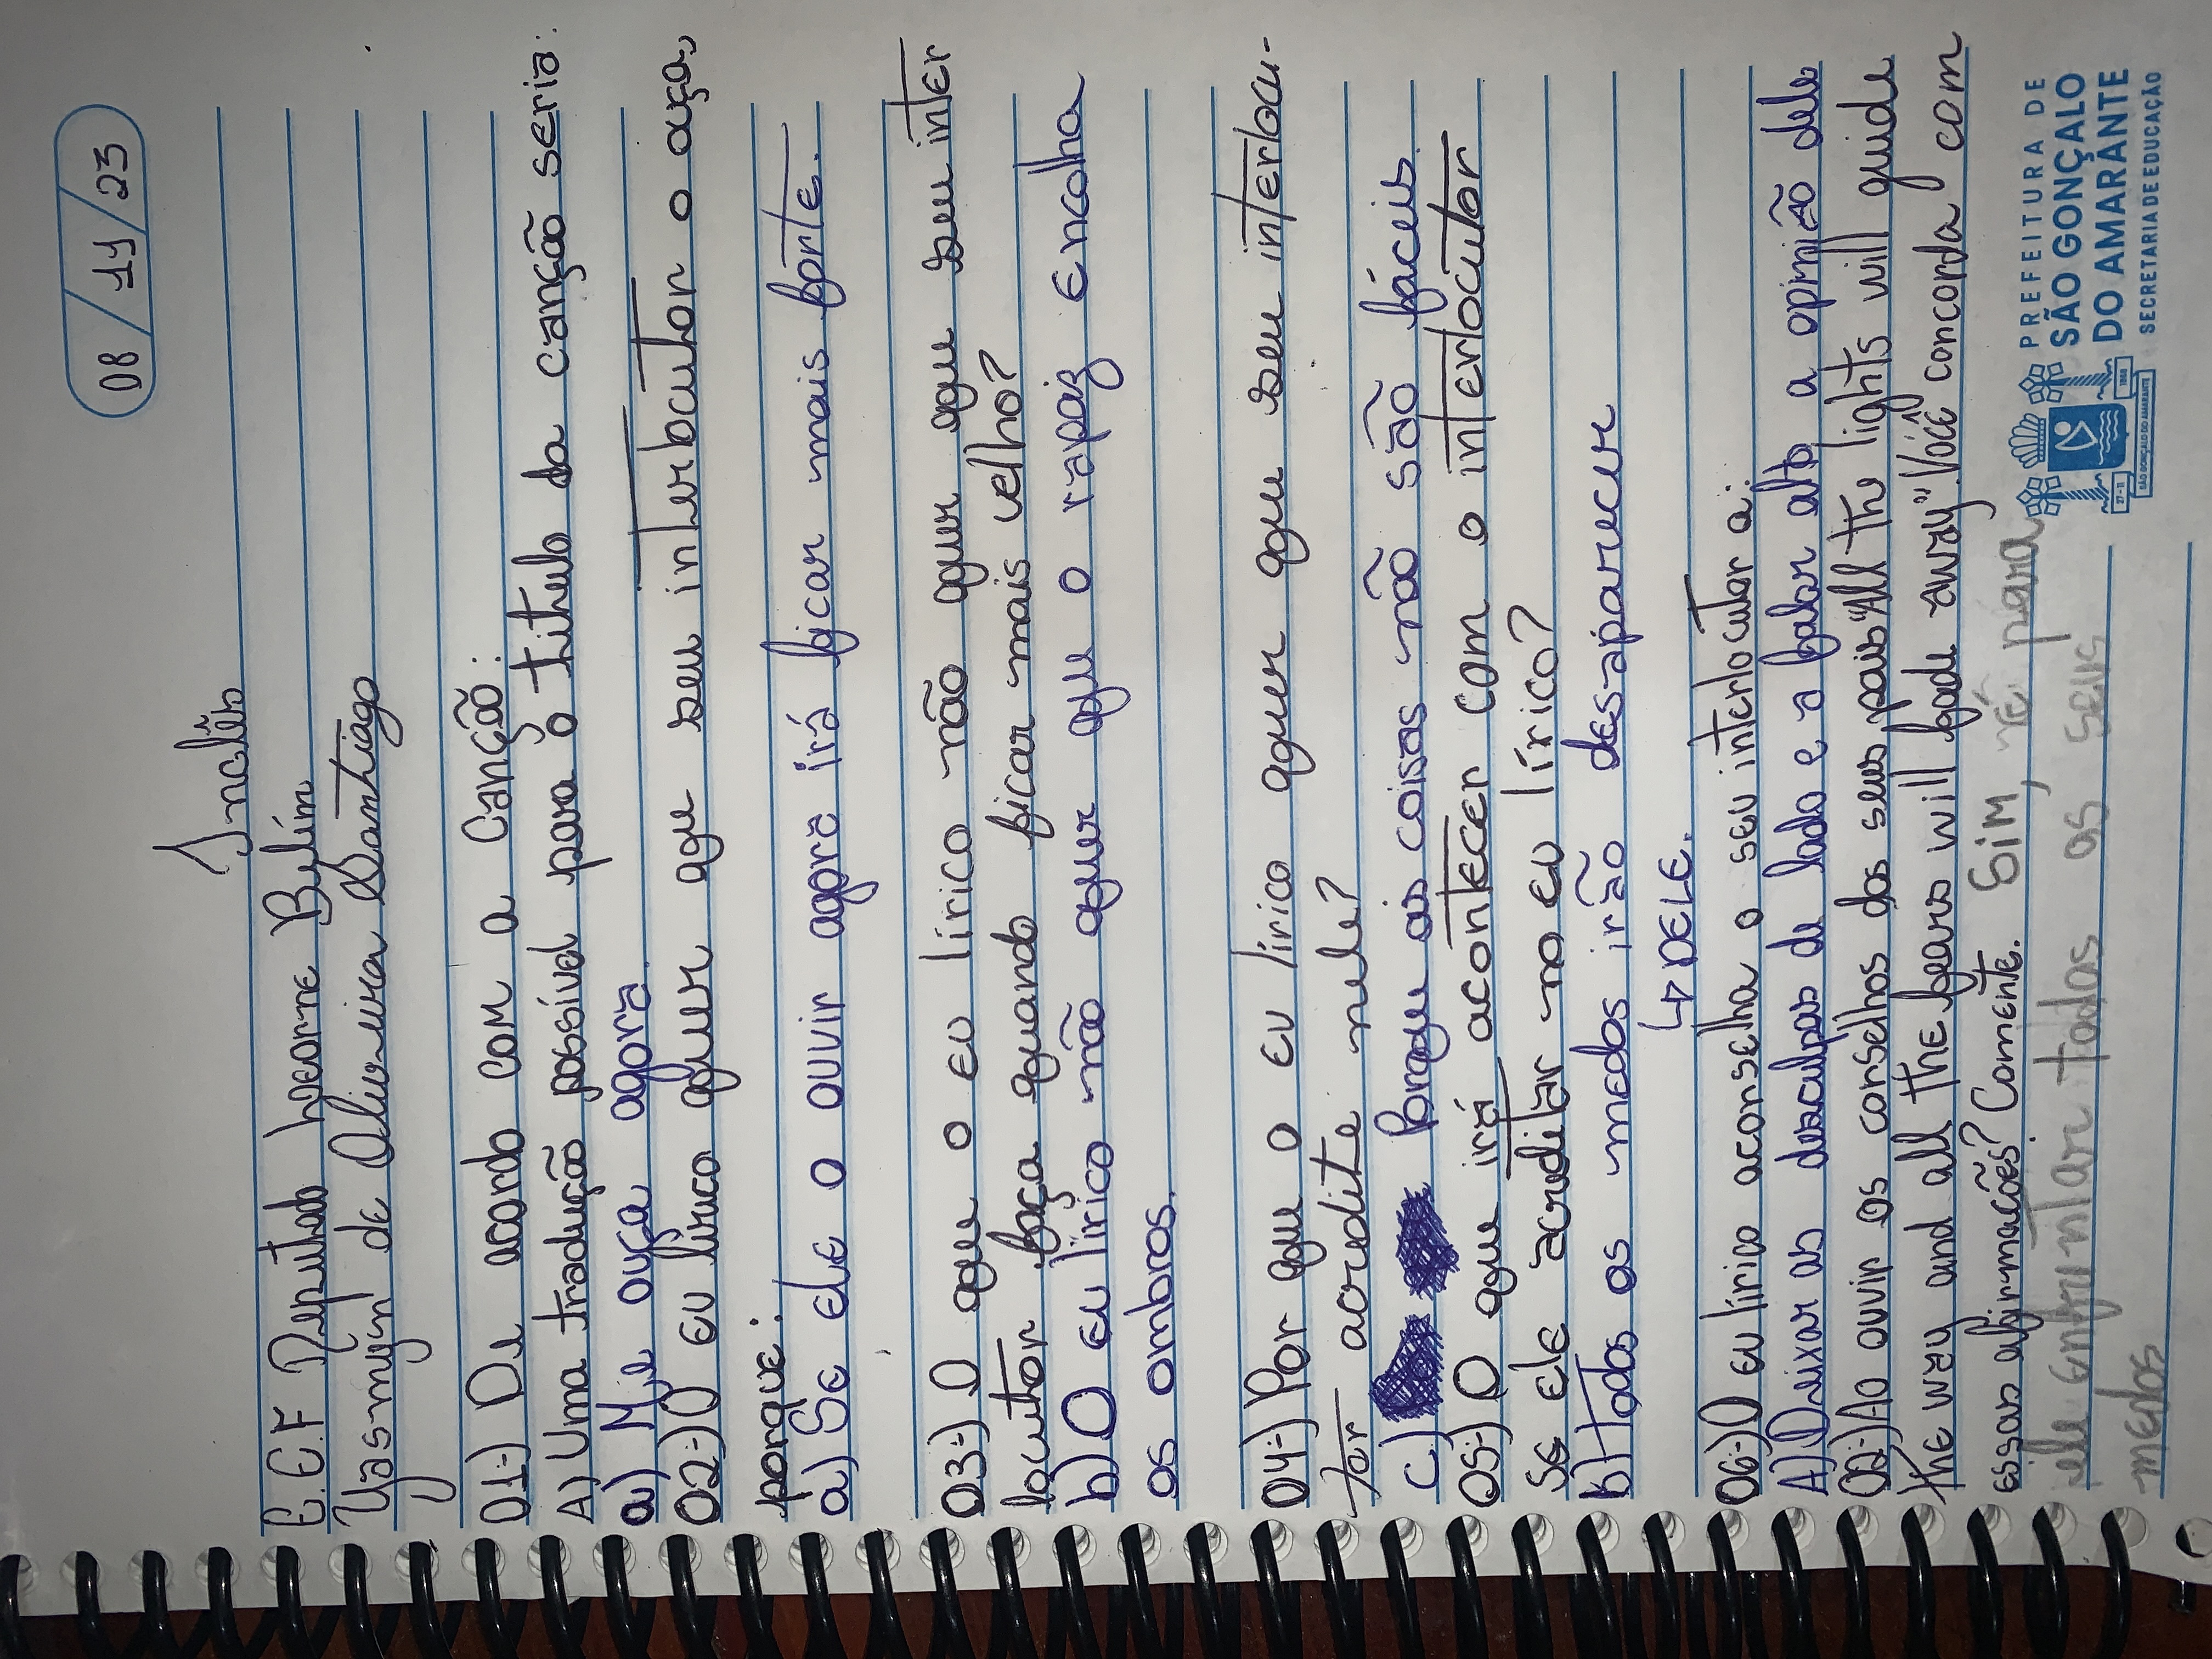 08/11/23
Inglês
E.E.F Deputado Licorne Belim
Yasmyn de Oliveira Santiago
01-) De acordo com a Canção:
A) Uma tradução possível para o titulo da canção seria:
a) Me ouça agora.
02-) O eu lírico quer que seu interlocutor o ouça,
porque:
a) Se ele o ouvir agora irá ficar mais forte.
03-) O que o eu lírico não quer que seu inter
locutor faça quando ficar mais velho?
b) O eu lírico não quer que o rapaz encolha
os ombros.
04-) Por que o eu lírico quer que seu interlocu-
tor acredite nele?
c) Porque as coisas não são fáceis.
05-) O que irá acontecer com o interlocutor
se ele acreditar no eu lírico?
b) todos os medos irão desaparecer
↳ DELE.
06-) O eu lírico aconselha o seu interlocutor a:
A) Deixar as desculpas de lado e a falar alto a opinião dele
02-) Ao ouvir os conselhos dos seus pais "All the lights will guide
the way and all the fears will fade away". Você concorda com
essas afirmações? Comente. Sim, é para
ele enfrentar todos os seus
medos
PREFEITURA DE
SÃO GONÇALO
DO AMARANTE
SECRETARIA DE EDUCAÇÃO
27-11 1868
SÃO GONÇALO DO AMARANTE